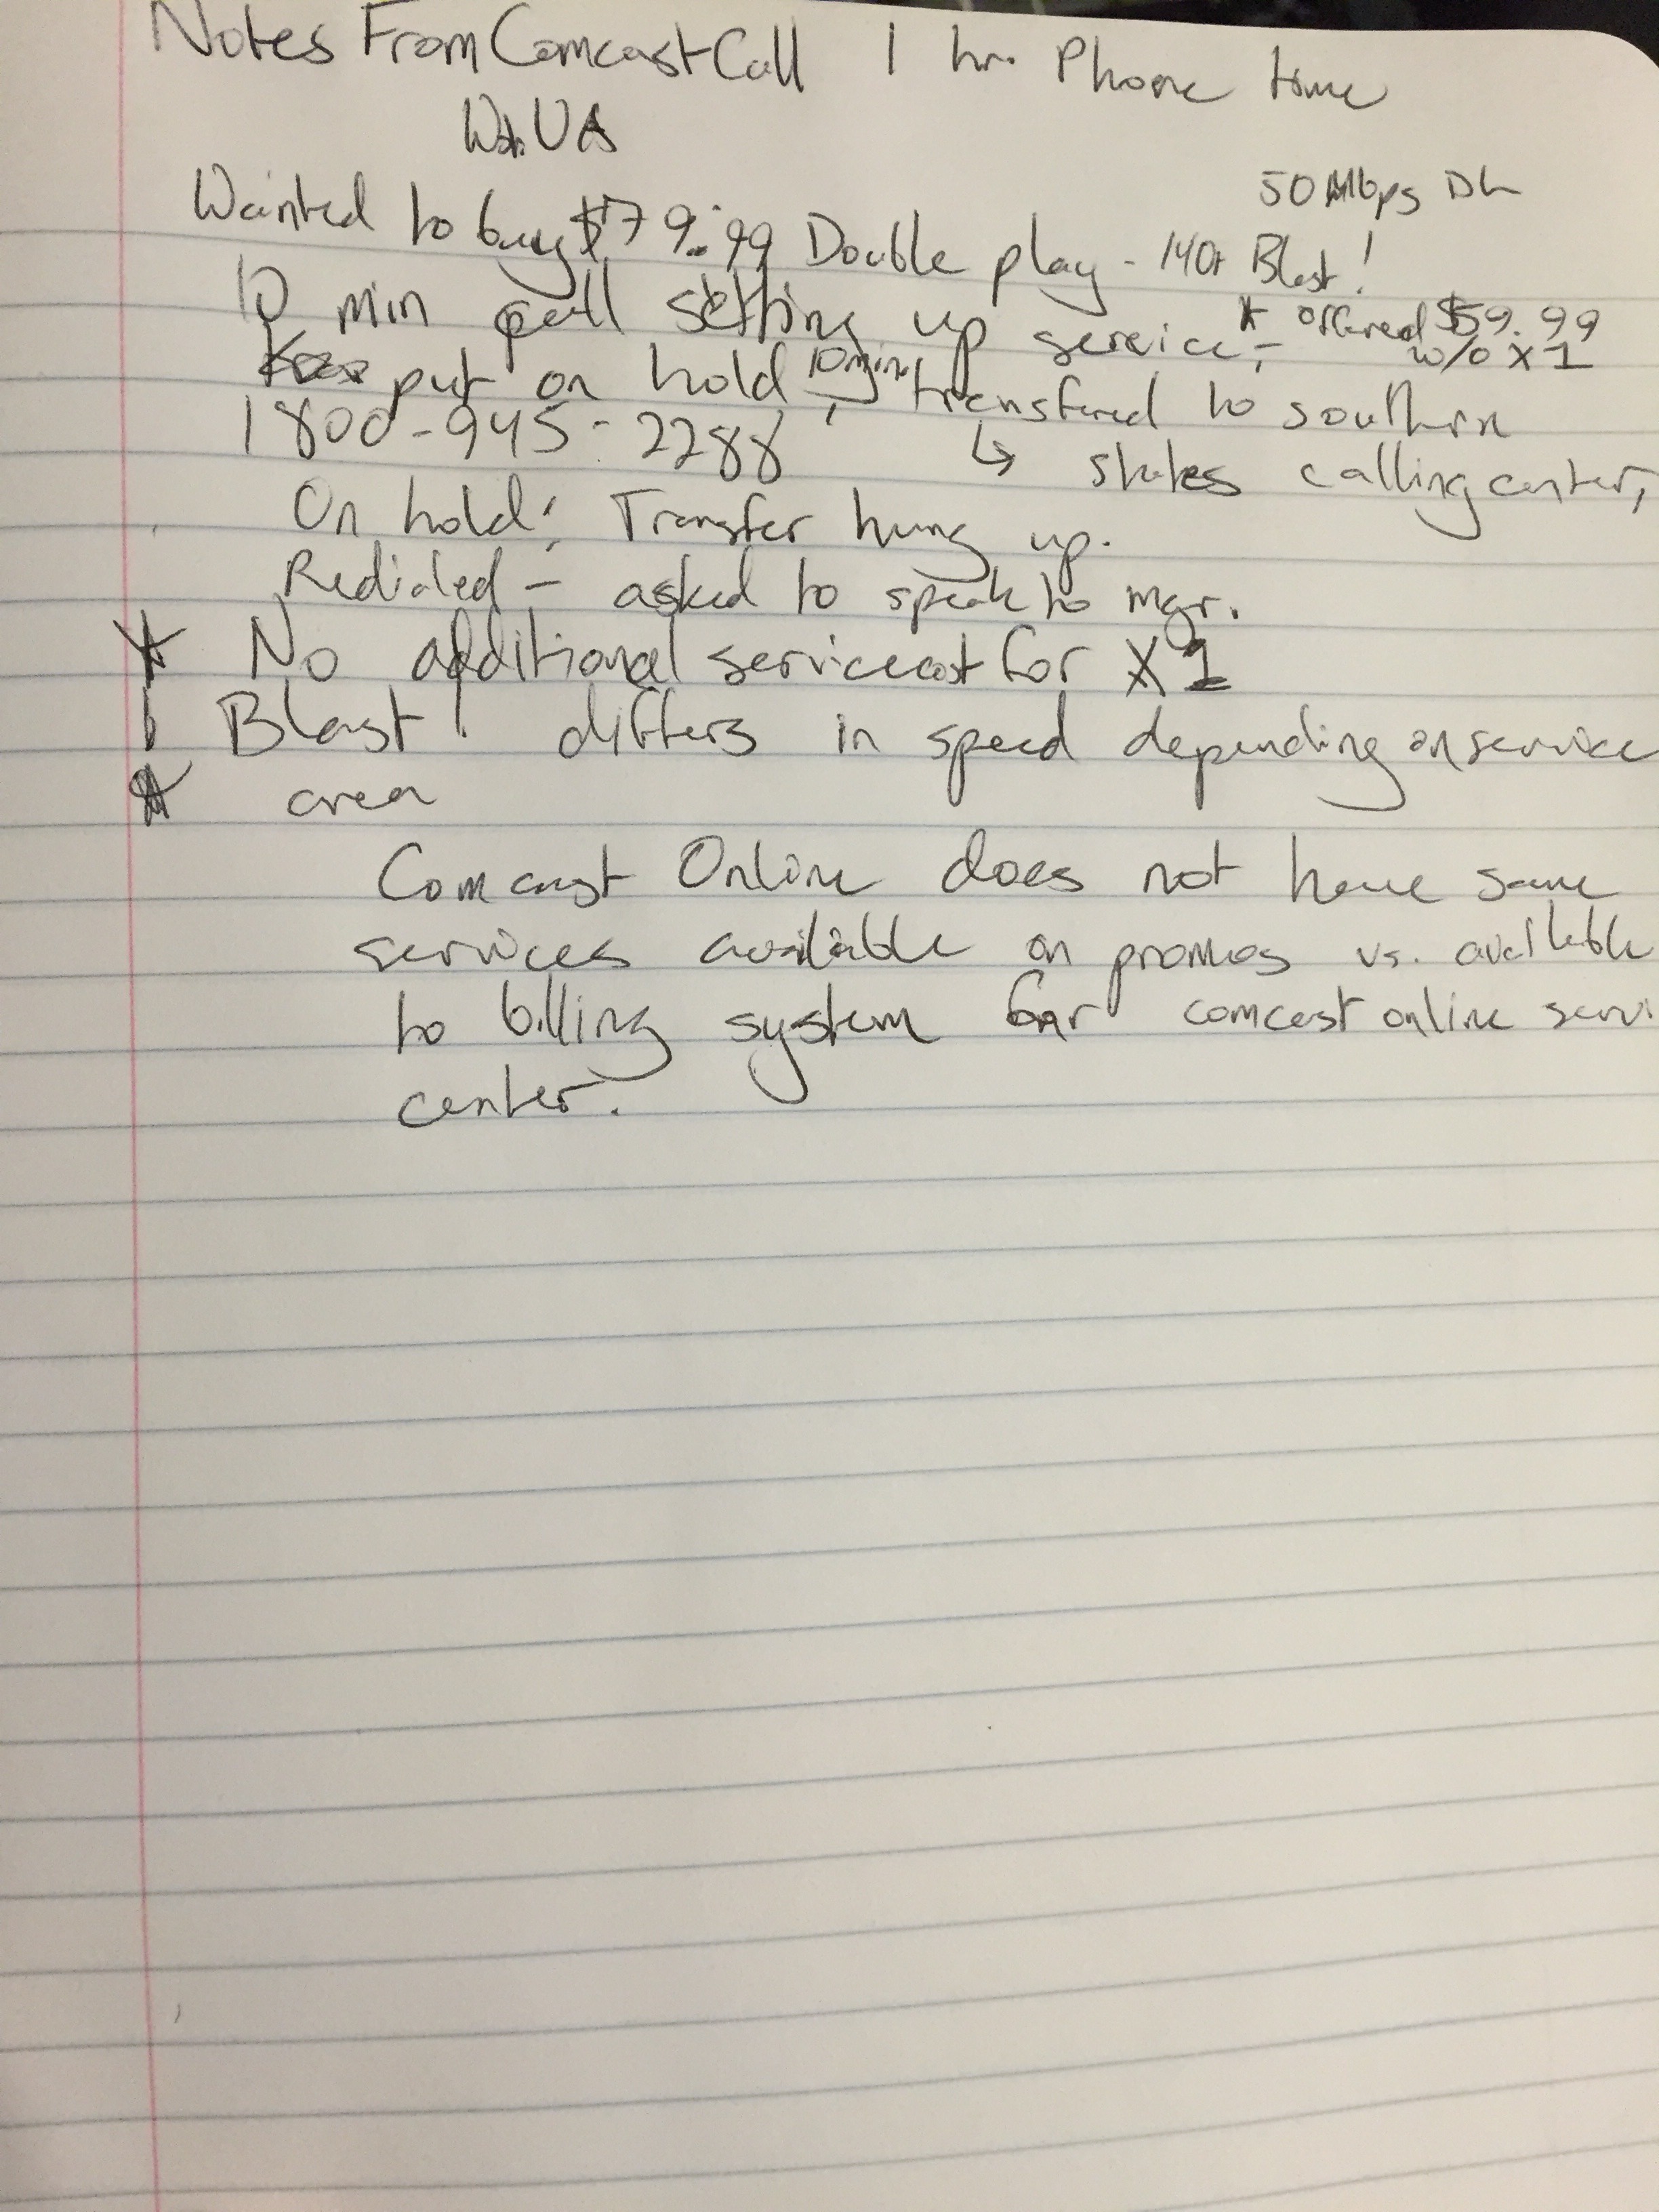 Notes From Comcast Call 1 hr. Phone time
50 Mbps DL
Wanted to buy $79.99 Double play - 140+ Blast!
10 min call setting up service, - * offered $59.99
w/o X1
put on hold 10 min, transfered to southern
1800-945-2288 ↳ states calling center,
On hold; Transfer hung up.
Redialed - asked to speak to mgr.
* No additional service cost for X1
Blast! differs in speed depending on service
* area
Comcast Online does not have same
services available on promos vs. available
to billing system for comcast online servi
center.